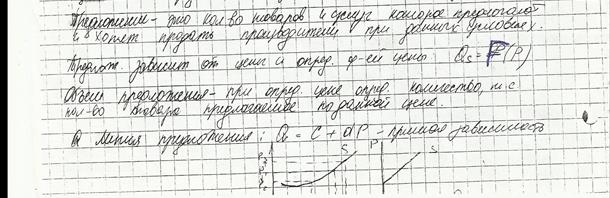 Предложение - это кол-во товаров и услуг которое предлогают
и хотят продать производители при данных условиях.
Предлож. зависит от цены и опред. ф-ей цены Qs = F(P)
Объем предложения - при опред. цене опред. количество, т.е
кол-во товара предлогаемое по данной цене.
Линия предложения: Q = C + dP - прямая зависимость
P S P S